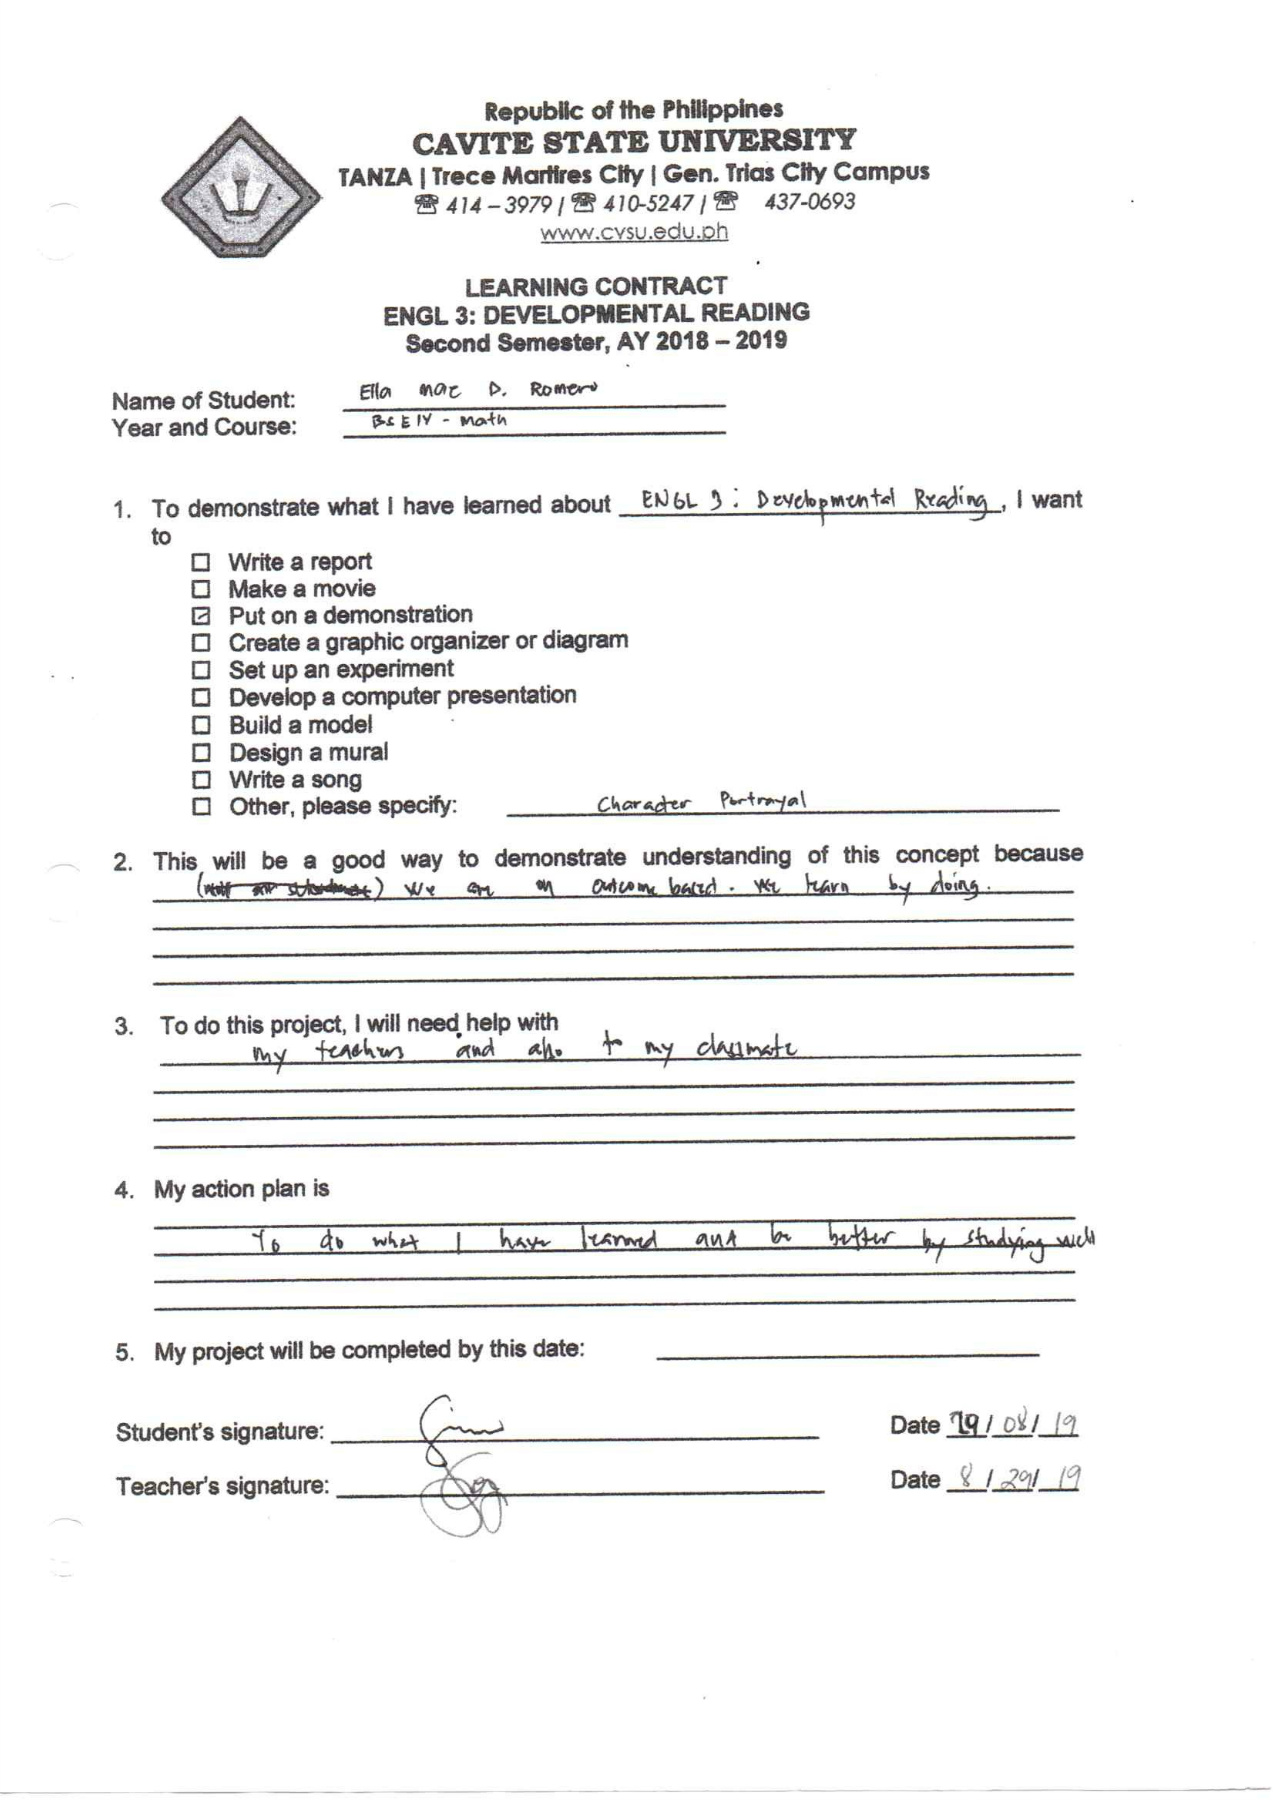 Republic of the Philippines
CAVITE STATE UNIVERSITY
TANZA | Trece Martires City | Gen. Trias City Campus
☎ 414 – 3979 / ☎ 410-5247 / ☎ 437-0693
www.cvsu.edu.ph
LEARNING CONTRACT
ENGL 3: DEVELOPMENTAL READING
Second Semester, AY 2018 – 2019
Name of Student: Ella Mae D. Romero
Year and Course: BSE IV - Math
1. To demonstrate what I have learned about ENGL 3 : Developmental Reading, I want
to
☐ Write a report
☐ Make a movie
☑ Put on a demonstration
☐ Create a graphic organizer or diagram
☐ Set up an experiment
☐ Develop a computer presentation
☐ Build a model
☐ Design a mural
☐ Write a song
☐ Other, please specify: Character Portrayal
2. This will be a good way to demonstrate understanding of this concept because
we are on outcome based. We learn by doing.
3. To do this project, I will need help with
my teachers and also to my classmate
4. My action plan is
To do what I have learned and be better by studying well
5. My project will be completed by this date:
Student's signature: Date 29 / 08 / 19
Teacher's signature: Date 8 / 29 / 19